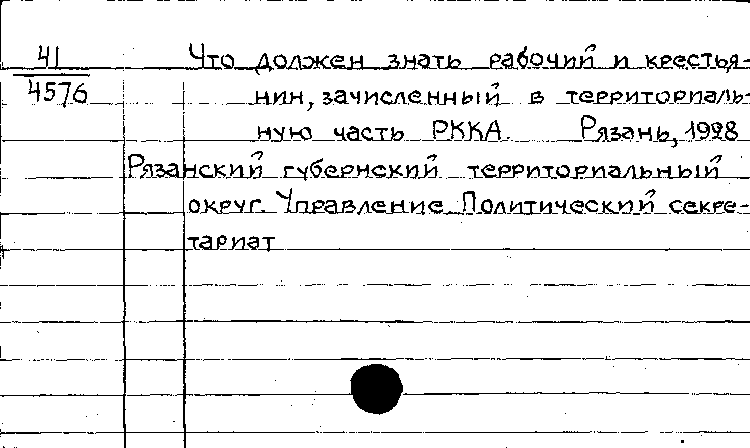 41 Что должен знать рабочий и крестья-
4576 нин, зачисленный в территориаль-
ную часть РККА. Рязань, 1928
Рязанский губернский территориальный
округ. Управление. Политический секре-
тариат